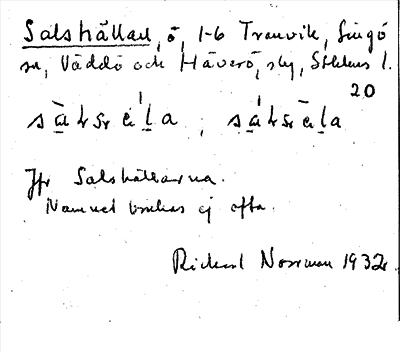 Salshällan, ö, 1-6 Tranvik, Singö
sn, Väddö och Häverö, skg, Sthlms l.
20
Jfr Salshällarna.
Namnet brukas ej ofta.
Rickard Norrman 1932.